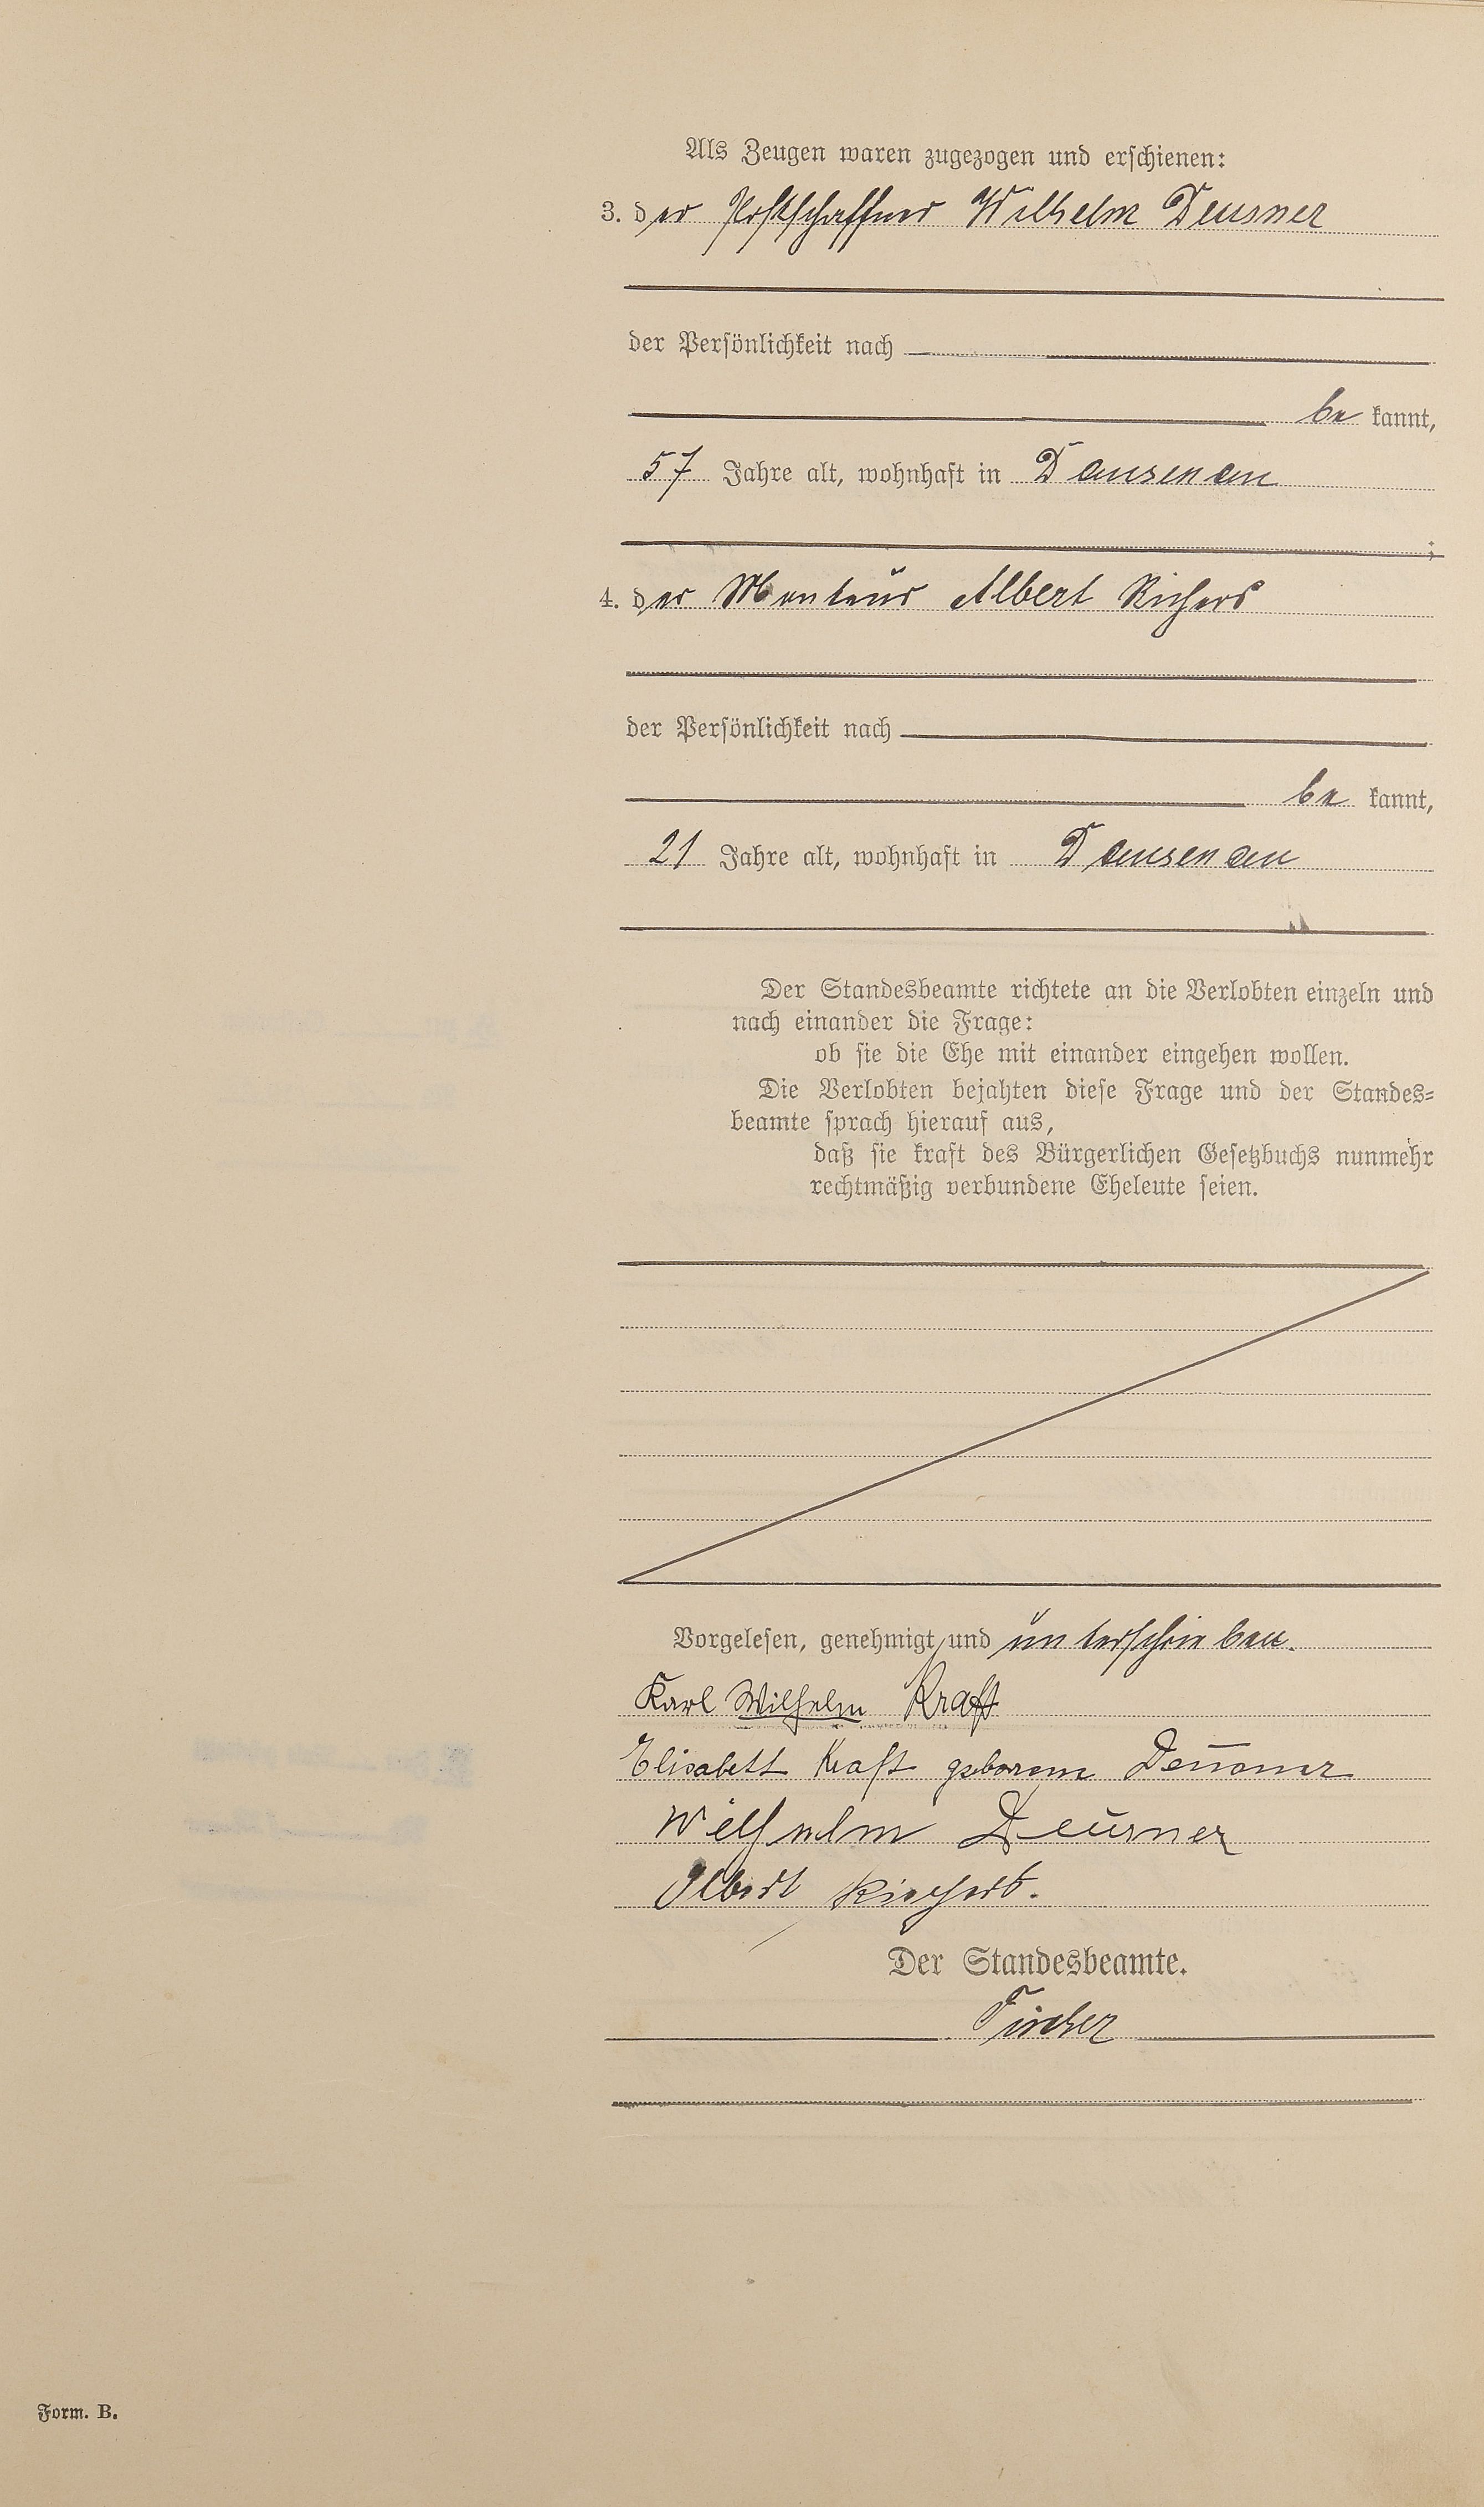 Als Zeugen waren zugezogen und erschienen:
3. der Postschaffner Wilhelm Deusner
der Persönlichkeit nach
be kannt,
57 Jahre alt, wohnhaft in Dausenau
;
4. der Monteur Albert Richard
der Persönlichkeit nach
be kannt,
21 Jahre alt, wohnhaft in Dausenau
Der Standesbeamte richtete an die Verlobten einzeln und
nach einander die Frage:
ob sie die Ehe mit einander eingehen wollen.
Die Verlobten bejahten diese Frage und der Standes-
beamte sprach hierauf aus,
daß sie kraft des Bürgerlichen Gesetzbuchs nunmehr
rechtmäßig verbundene Eheleute seien.
Vorgelesen, genehmigt und unterschrieben.
Karl Wilhelm Kraft
Elisabeth Kraft geborene Deusner
Wilhelm Deusner
Albert
Der Standesbeamte.
Fischer
Form. B.